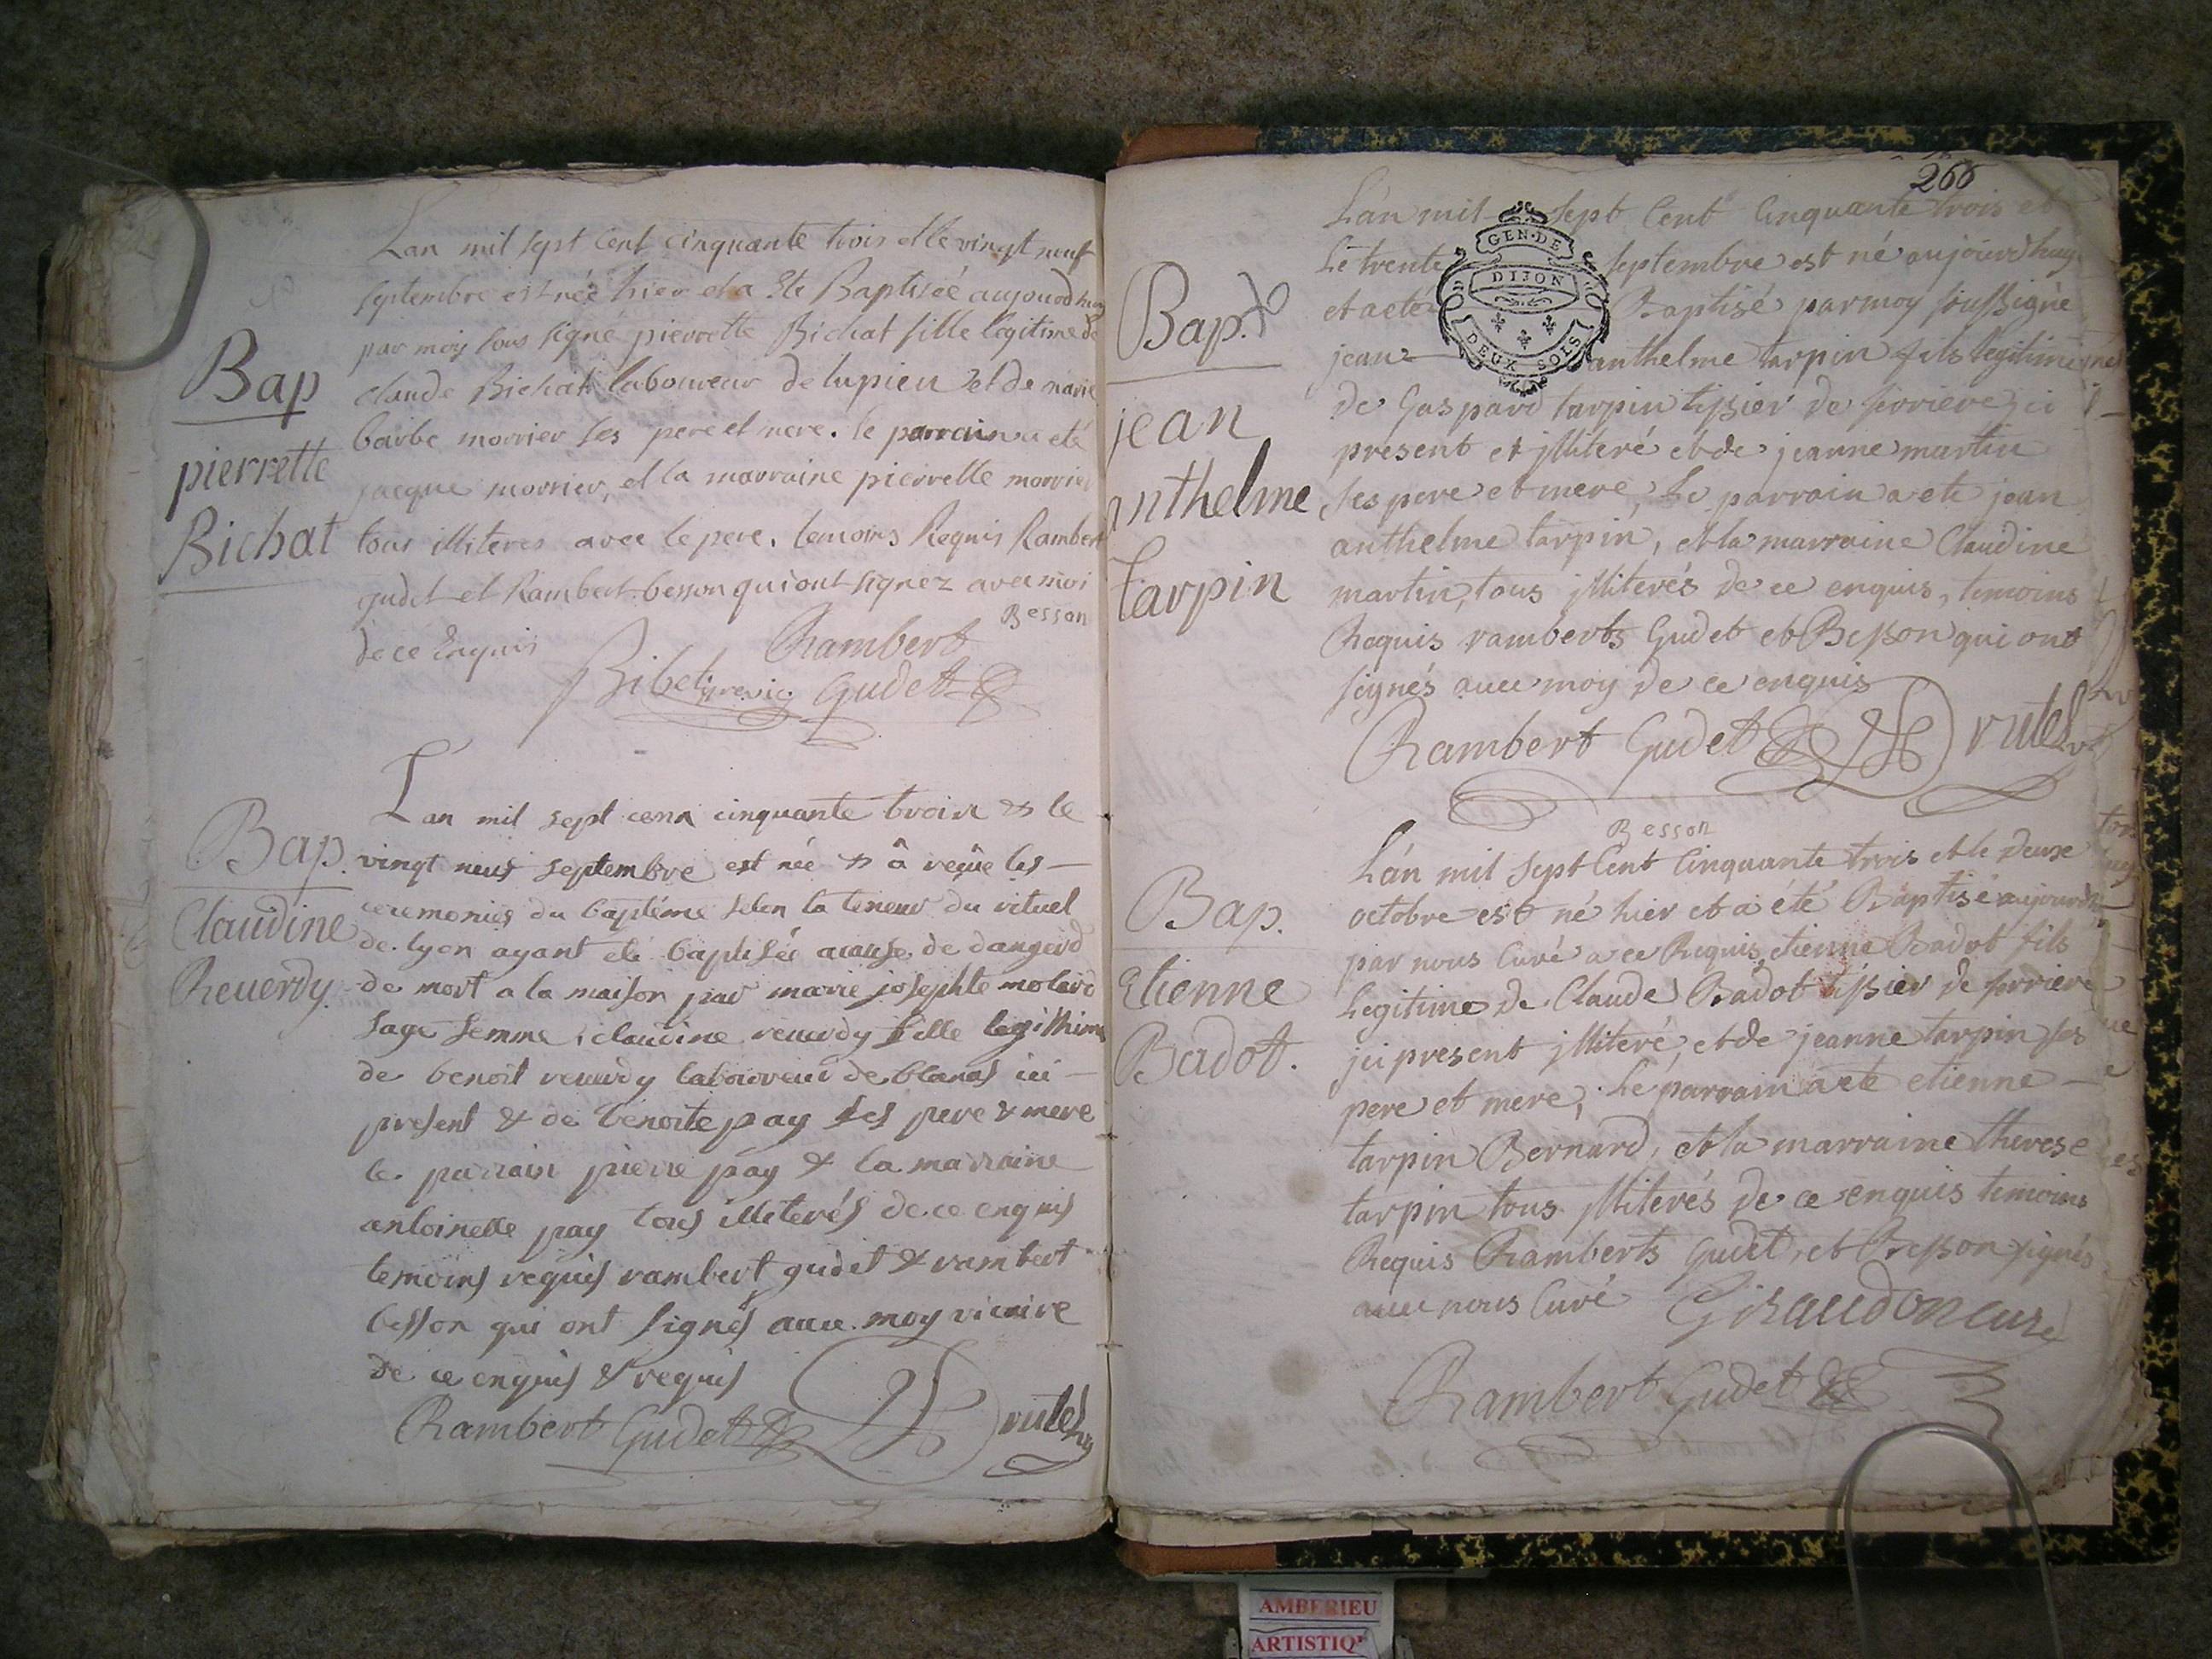 Bap
pierrette
Bichat
Lan mil sept cent cinquante trois et le vingt neuf
septembre est née hier et a Ete Baptisée aujourdhuy
par moy sous signé pierrette Bichat fille legitime de
claude Bichat laboureur de lupieu et de marie
barbe morrier ses pere et mere. le parrain a eté
jacque morrier, et la marraine pierrette morrier
tous illiteres avec le pere. temoins Requis Rambert
gudet et Rambert besson qui ont signez avec moi
de ce Enquis
Besson
Rambert
Gudet
Bap.
Claudine
Reverdy.
Lan mil sept cent cinquante trois & le
vingt neuf septembre est née & â reçûe les
ceremonies du baptéme selon la teneur du rituel
de lyon ayant eté baptisée acause de dangerd
de mort a la maison par marie josephte molard
sage femme, claudine reverdy fille legithime
de benoit reverdy laboureur de blanas ici
present & de benoite pay ses pere & mere
le parrain pierre pay & la marraine
antoinette pay tous illiterés de ce enquis
temoins requis rambert gudet & rambert
besson qui ont signés avec moy vicaire
de ce enquis & requis
Rambert Gudet
266
GEN·DE
DIJON
DEUX SOLS
Bap.
jean
anthelme
tarpin
L'an mil sept Cent Cinquante trois et
Le trente septembre est né aujourdhuy
et a eté Baptisé par moy soussigné
jean anthelme tarpin fils legitime
de Gaspard tarpin tissier de serriere ici
present et jlliteré et de jeanne martin
ses pere et mere, Le parrain a eté jean
anthelme tarpin, et la marraine Claudine
martin, tous jlliterés de ce enquis, temoins
Requis ramberts Gudet et Besson qui ont
signés avec moy de ce enquis
Rambert Gudet
Besson
Bap.
Etienne
Badot.
L'an mil sept Cent Cinquante trois et le deux
octobre est né hier et a été Baptisé aujourdhuy
par nous Curé a ce Requis, etienne Badot fils
Legitime de Claude Badot tissier de serriere
jci present jlliteré, et de jeanne tarpin ses
pere et mere, Le parrain a eté etienne
tarpin Bernard, et la marraine therese
tarpin tous jlliterés de ce enquis temoins
Requis Ramberts Gudet, et Besson signés
avec nous Curé Giraudon curé
Rambert Gudet
AMBERIEU
ARTISTIQ